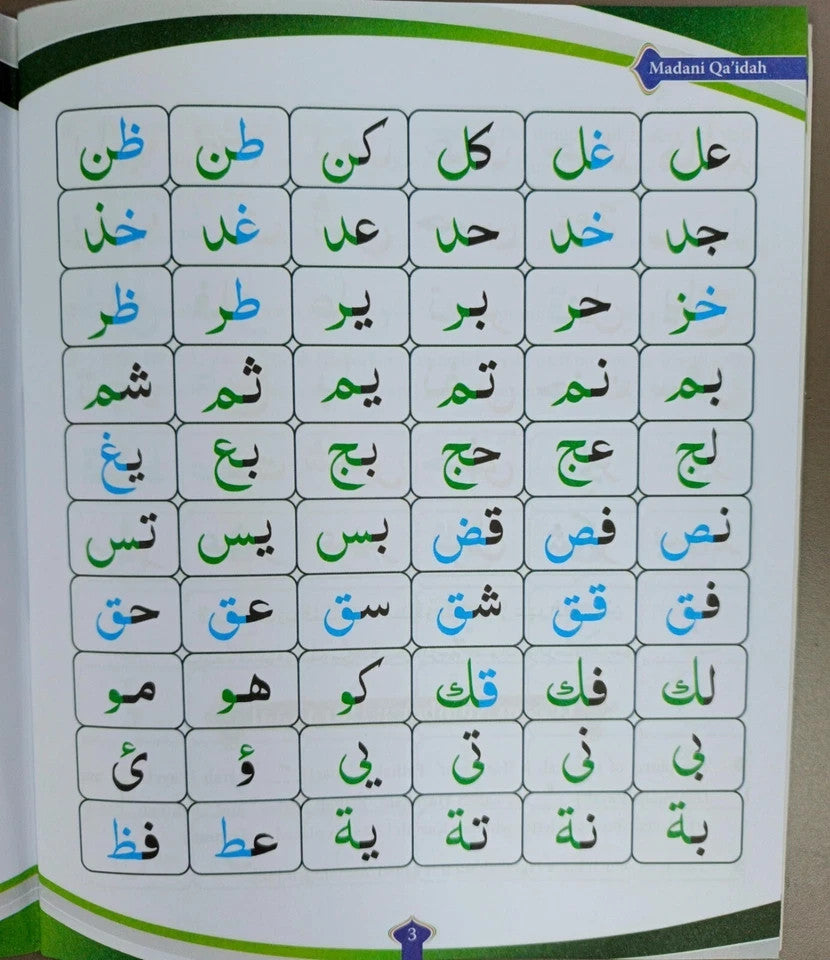 Madani Qa'idah
عل غل كل كن طن ظن
جد خد حد عد غد خذ
خز حر بر ير طر ظر
بم نم تم يم ثم شم
لج عج حج بج بع يغ
نص فص قض بس يس تس
فق قق شق سق عق حق
لك فك قك كو هو مو
بي ني تي يي ؤ ئ
بة نة تة ية عط فظ
3